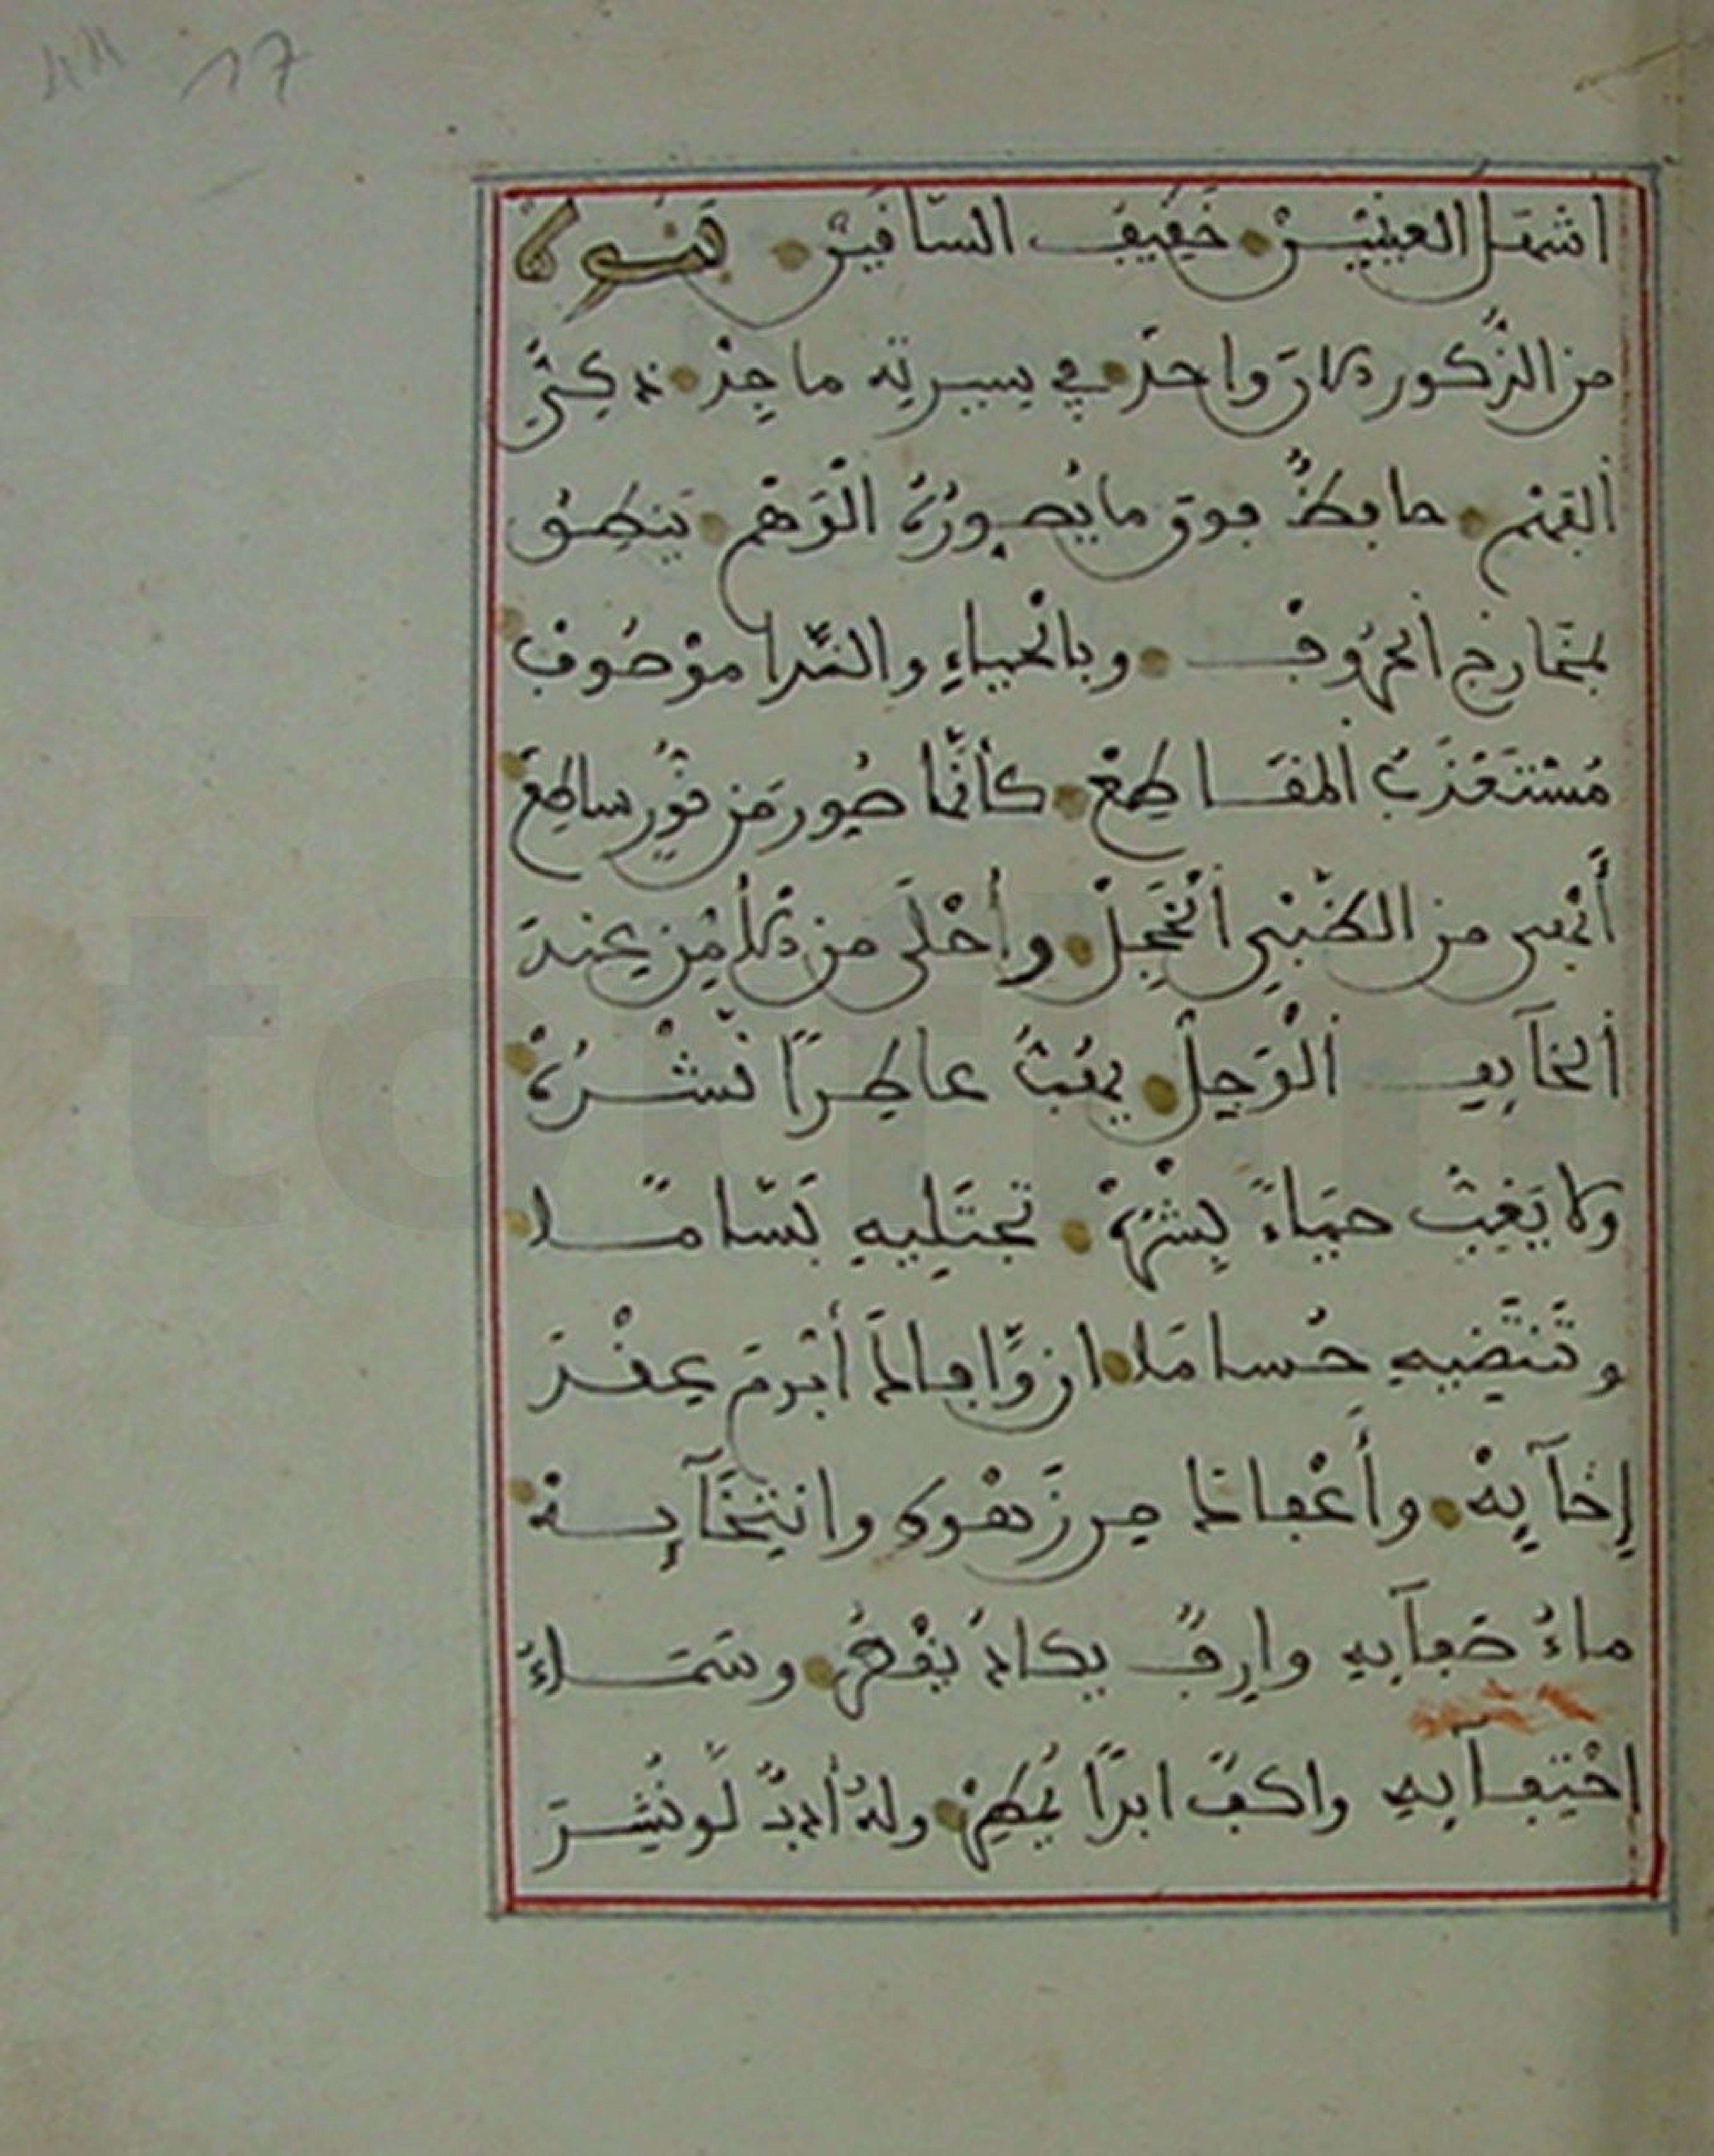 17
اشهل العينين خفيف الساقين بنوه
من الذكور كان واحد في سيرته ماجد ذكيّ
ألفهم حافظٌ فوق ما يُصورُهُ الوَهْم يَنطِقُ
بمَخارِج الحُرُوفْ وبالحياءِ والنَّدا مَوْصُوفْ
مُسْتَعْذَبُ المقَاطِعْ كأنّما صُورَ من نُورٍ ساطِعْ
أَنْفس من الظَّبْيِ الخَجِلْ وأَحْلَى من الأَمْنِ عِندَ
الخآيِفِ الوَجِلْ يهُبُّ عاطِرًا نَشْرُهُ
ولا يَغِبُّ حيَاءً بِشْرُهُ تجتَلِيهِ بَسّامَا
وتَنتَضِيهِ حُسامَا ان وَافا لمَا أبرمَ عِقْدَ
إِخآيِهْ وأَعْفا لما من زَهْوه وانتِخَآيِهْ
ماءُ صَفآيِهِ وارِفٌ يكادُ يَقْطُر وسَمَاءُ
إحْتِفآيِهِ واكفٌ ابدًا يُمْطِرْ ولهُ أدبٌ لَو نُشِرَ